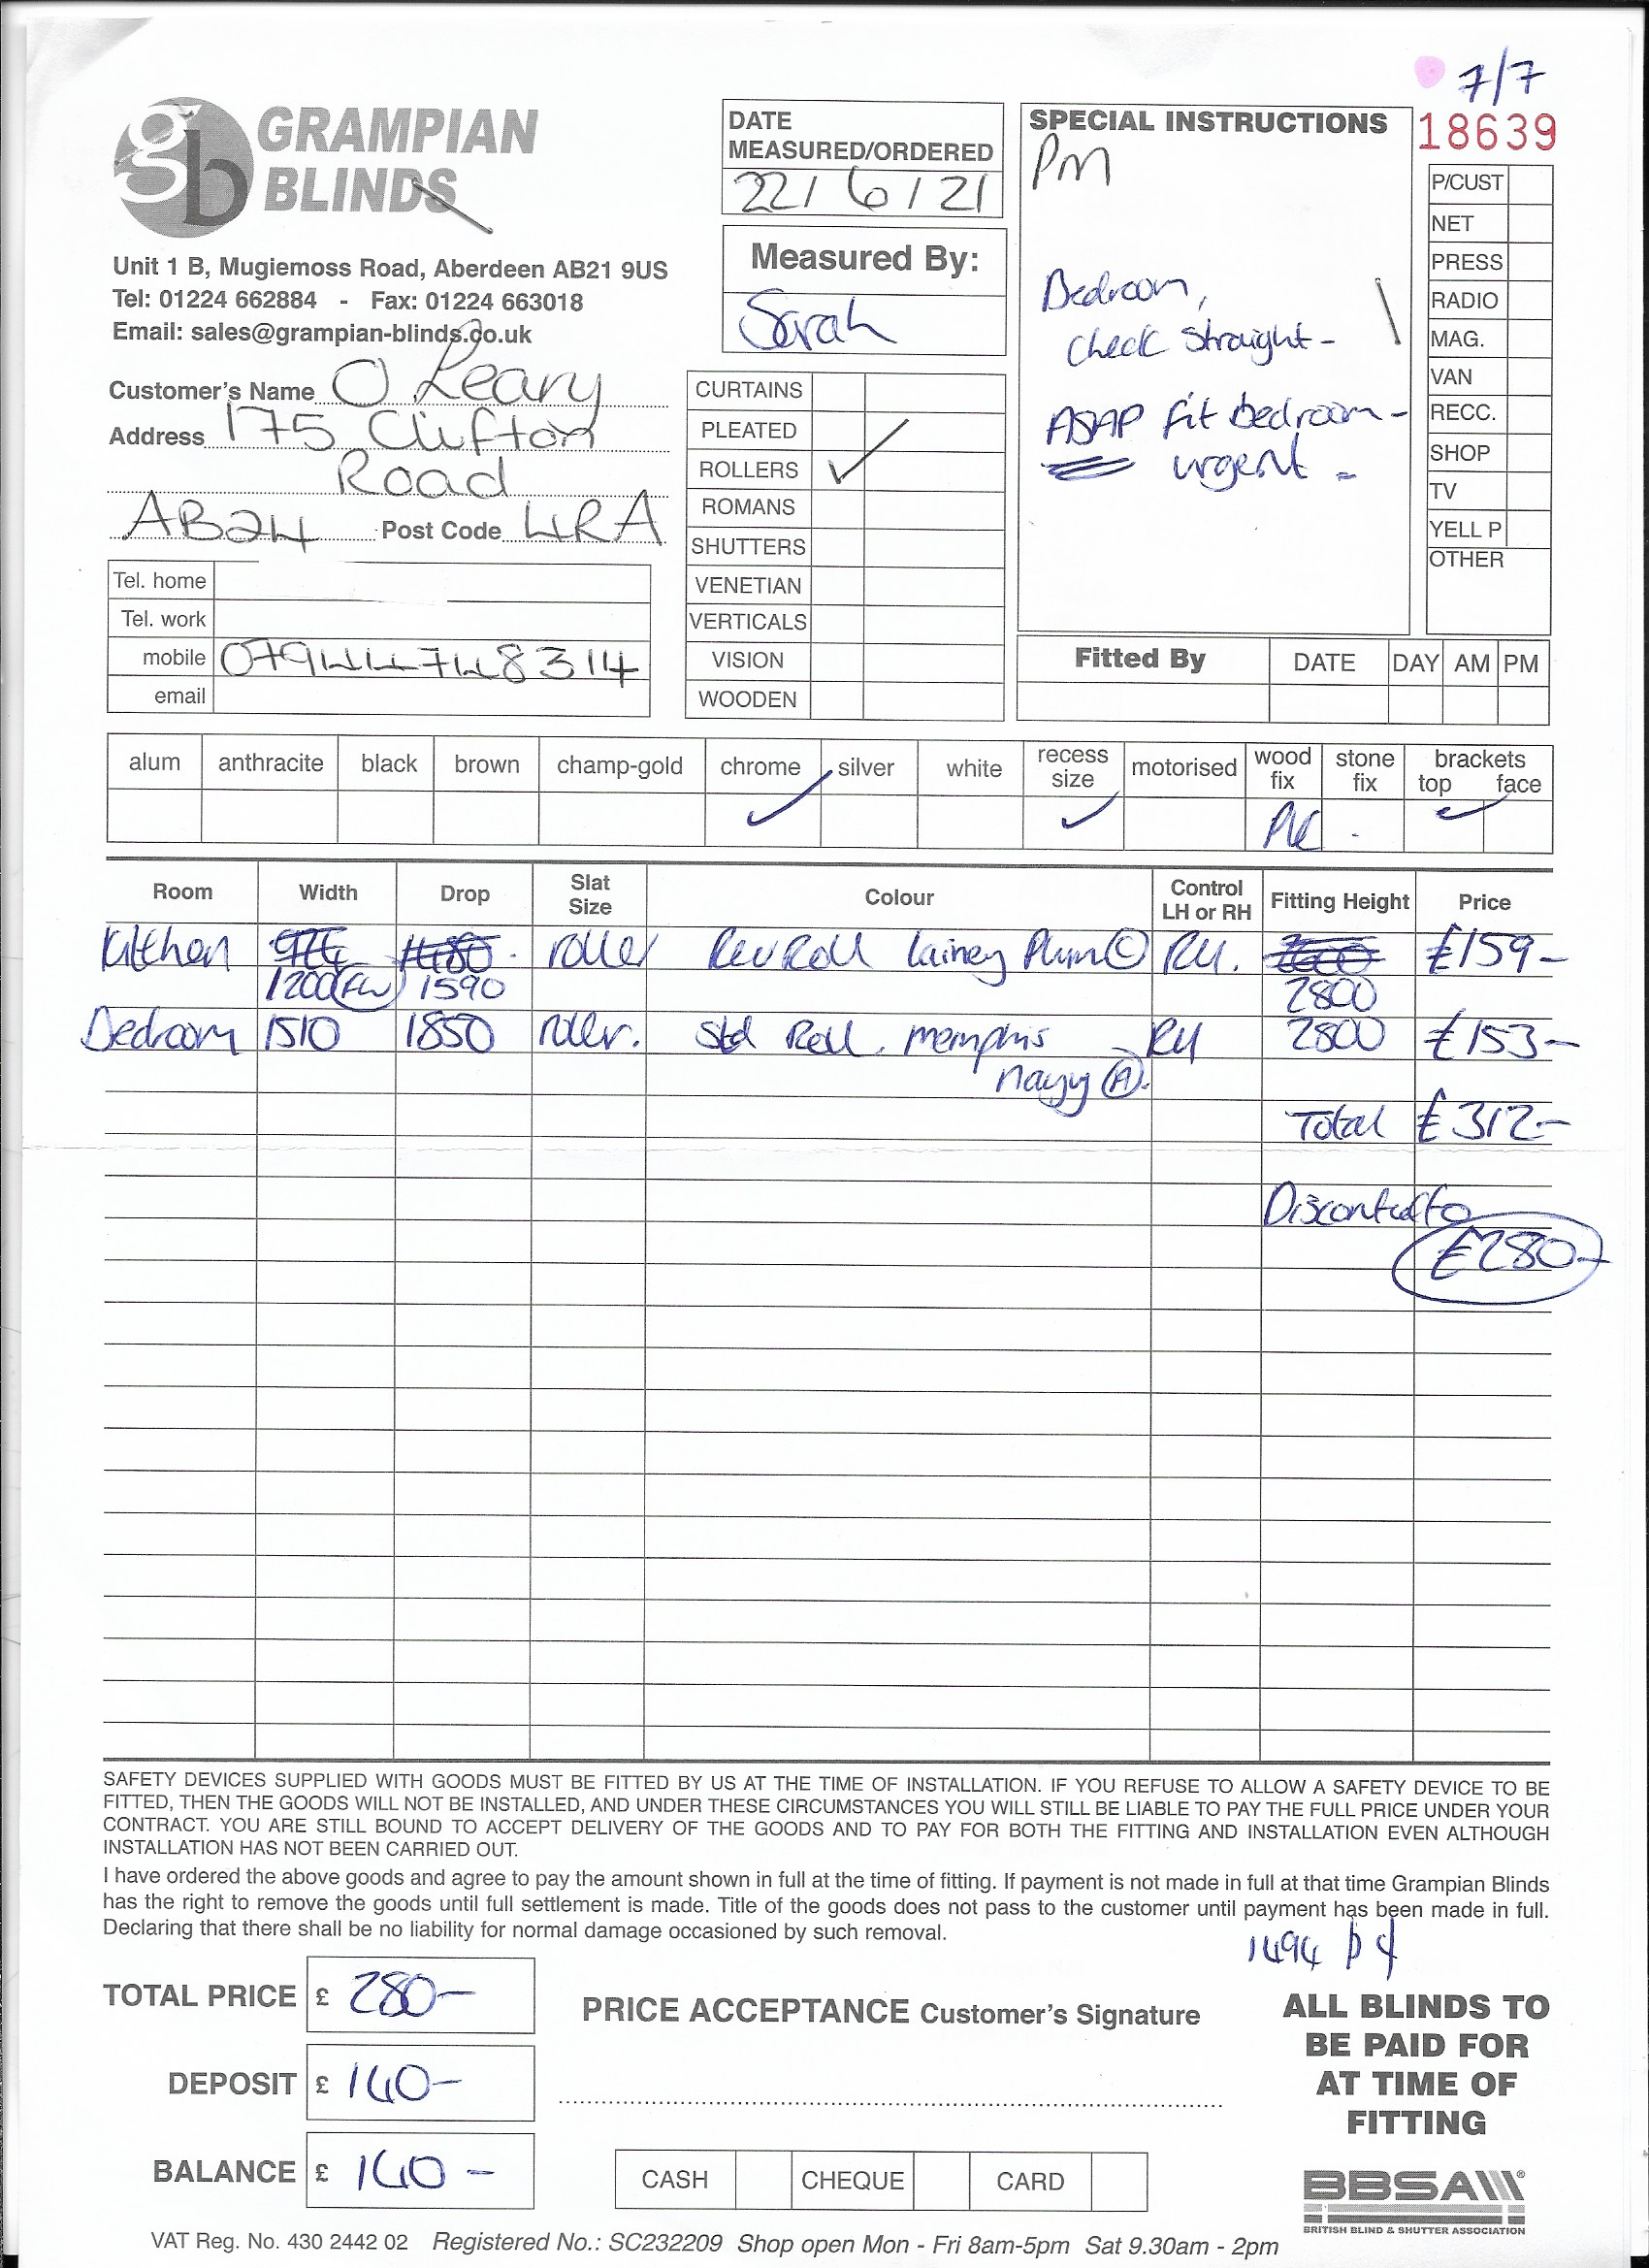 7/7
18639
gb GRAMPIAN
BLINDS
Unit 1 B, Mugiemoss Road, Aberdeen AB21 9US
Tel: 01224 662884 - Fax: 01224 663018
Email: sales@grampian-blinds.co.uk
Customer's Name O Leary
Address 175 Clifton
Road
AB24 Post Code 4RA
Tel. home
Tel. work
mobile 07944748314
email
DATE
MEASURED/ORDERED
22/6/21
Measured By:
Sarah
CURTAINS
PLEATED
ROLLERS ✓
ROMANS
SHUTTERS
VENETIAN
VERTICALS
VISION
WOODEN
SPECIAL INSTRUCTIONS
PM
Bedroom,
check straight -
ASAP fit bedroom -
urgent -
P/CUST
NET
PRESS
RADIO
MAG.
VAN
RECC.
SHOP
TV
YELL P
OTHER
Fitted By DATE DAY AM PM
alum anthracite black brown champ-gold chrome silver white recess size motorised wood fix stone fix brackets top face
✓ ✓ ✓
Room Width Drop Slat Size Colour Control LH or RH Fitting Height Price
Kitchen roller RevRoll Lainey Plum (C) RH. £159-
1200 (FW) 1590 2800
Bedroom 1510 1850 roller. Std Roll. memphis RH 2800 £153-
navy (A).
Total £312-
£280-
SAFETY DEVICES SUPPLIED WITH GOODS MUST BE FITTED BY US AT THE TIME OF INSTALLATION. IF YOU REFUSE TO ALLOW A SAFETY DEVICE TO BE
FITTED, THEN THE GOODS WILL NOT BE INSTALLED, AND UNDER THESE CIRCUMSTANCES YOU WILL STILL BE LIABLE TO PAY THE FULL PRICE UNDER YOUR
CONTRACT. YOU ARE STILL BOUND TO ACCEPT DELIVERY OF THE GOODS AND TO PAY FOR BOTH THE FITTING AND INSTALLATION EVEN ALTHOUGH
INSTALLATION HAS NOT BEEN CARRIED OUT.
I have ordered the above goods and agree to pay the amount shown in full at the time of fitting. If payment is not made in full at that time Grampian Blinds
has the right to remove the goods until full settlement is made. Title of the goods does not pass to the customer until payment has been made in full.
Declaring that there shall be no liability for normal damage occasioned by such removal.
1494
TOTAL PRICE £ 280-
DEPOSIT £ 140-
BALANCE £ 140-
PRICE ACCEPTANCE Customer's Signature
CASH CHEQUE CARD
ALL BLINDS TO
BE PAID FOR
AT TIME OF
FITTING
BBSA
BRITISH BLIND & SHUTTER ASSOCIATION
VAT Reg. No. 430 2442 02 Registered No.: SC232209 Shop open Mon - Fri 8am-5pm Sat 9.30am - 2pm